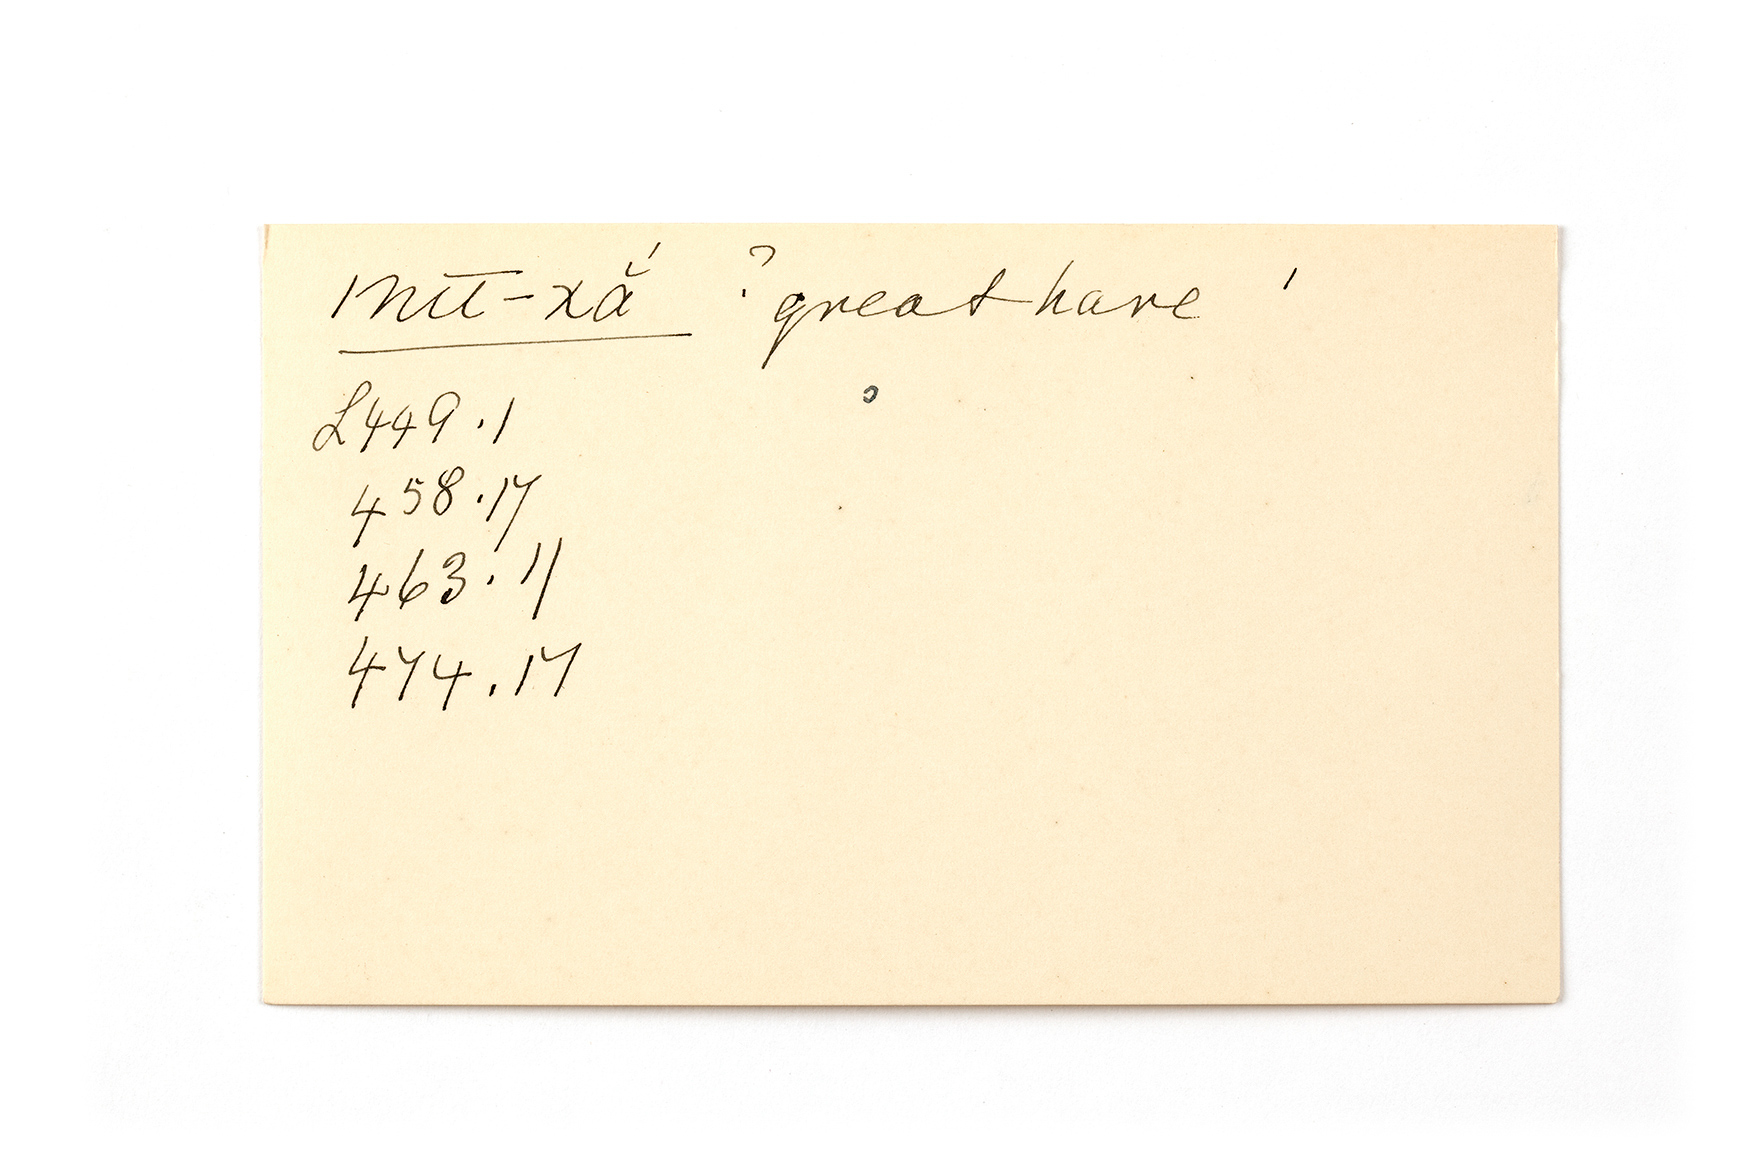 mū-xắ ? great hare '
L449.1
458.17
463.11
474.17